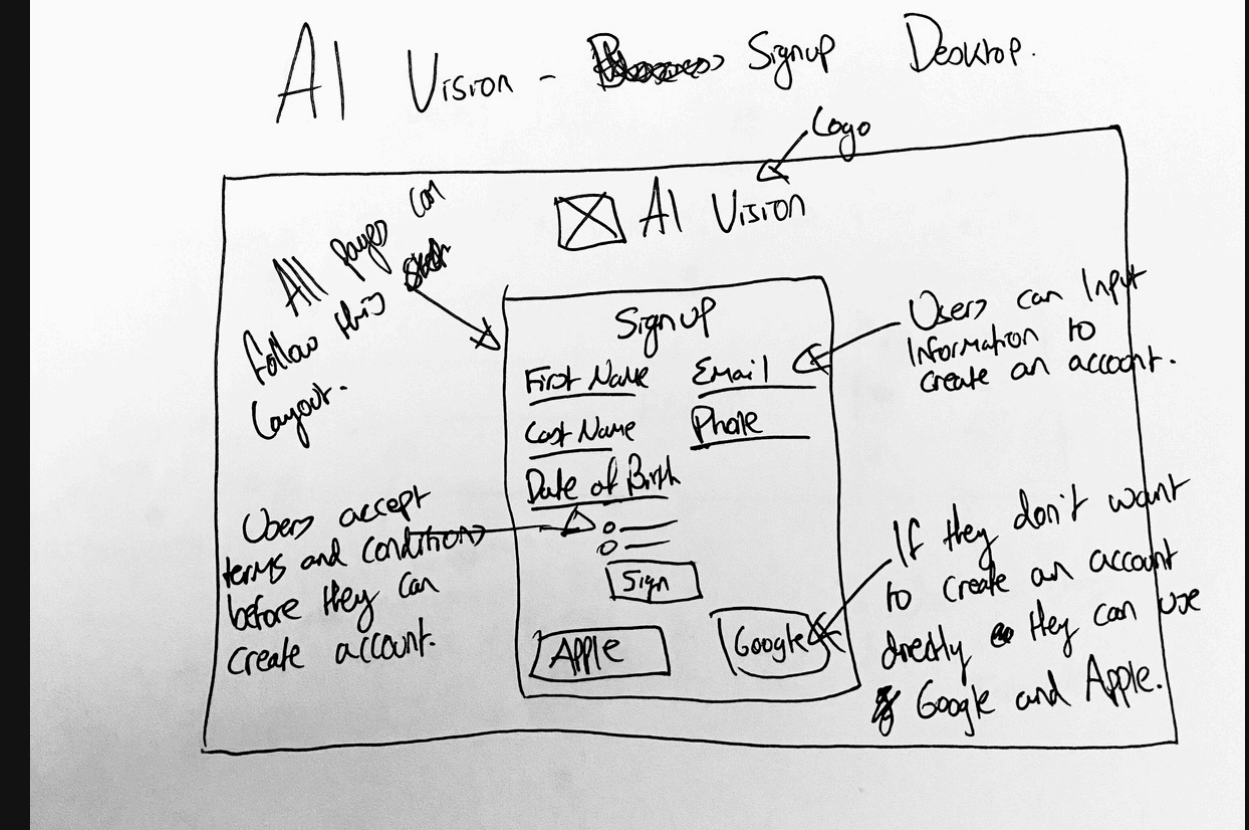 AI Vision - Signup Desktop.
Logo
AI Vision
All pages can
follow this
layout.
Signup
First Name
Email
Last Name
Phone
Date of Birth
Sign
Apple
Google
Users can Input
Information to
create an account.
Users accept
terms and conditions
before they can
create account.
If they don't want
to create an account
directly they can use
Google and Apple.